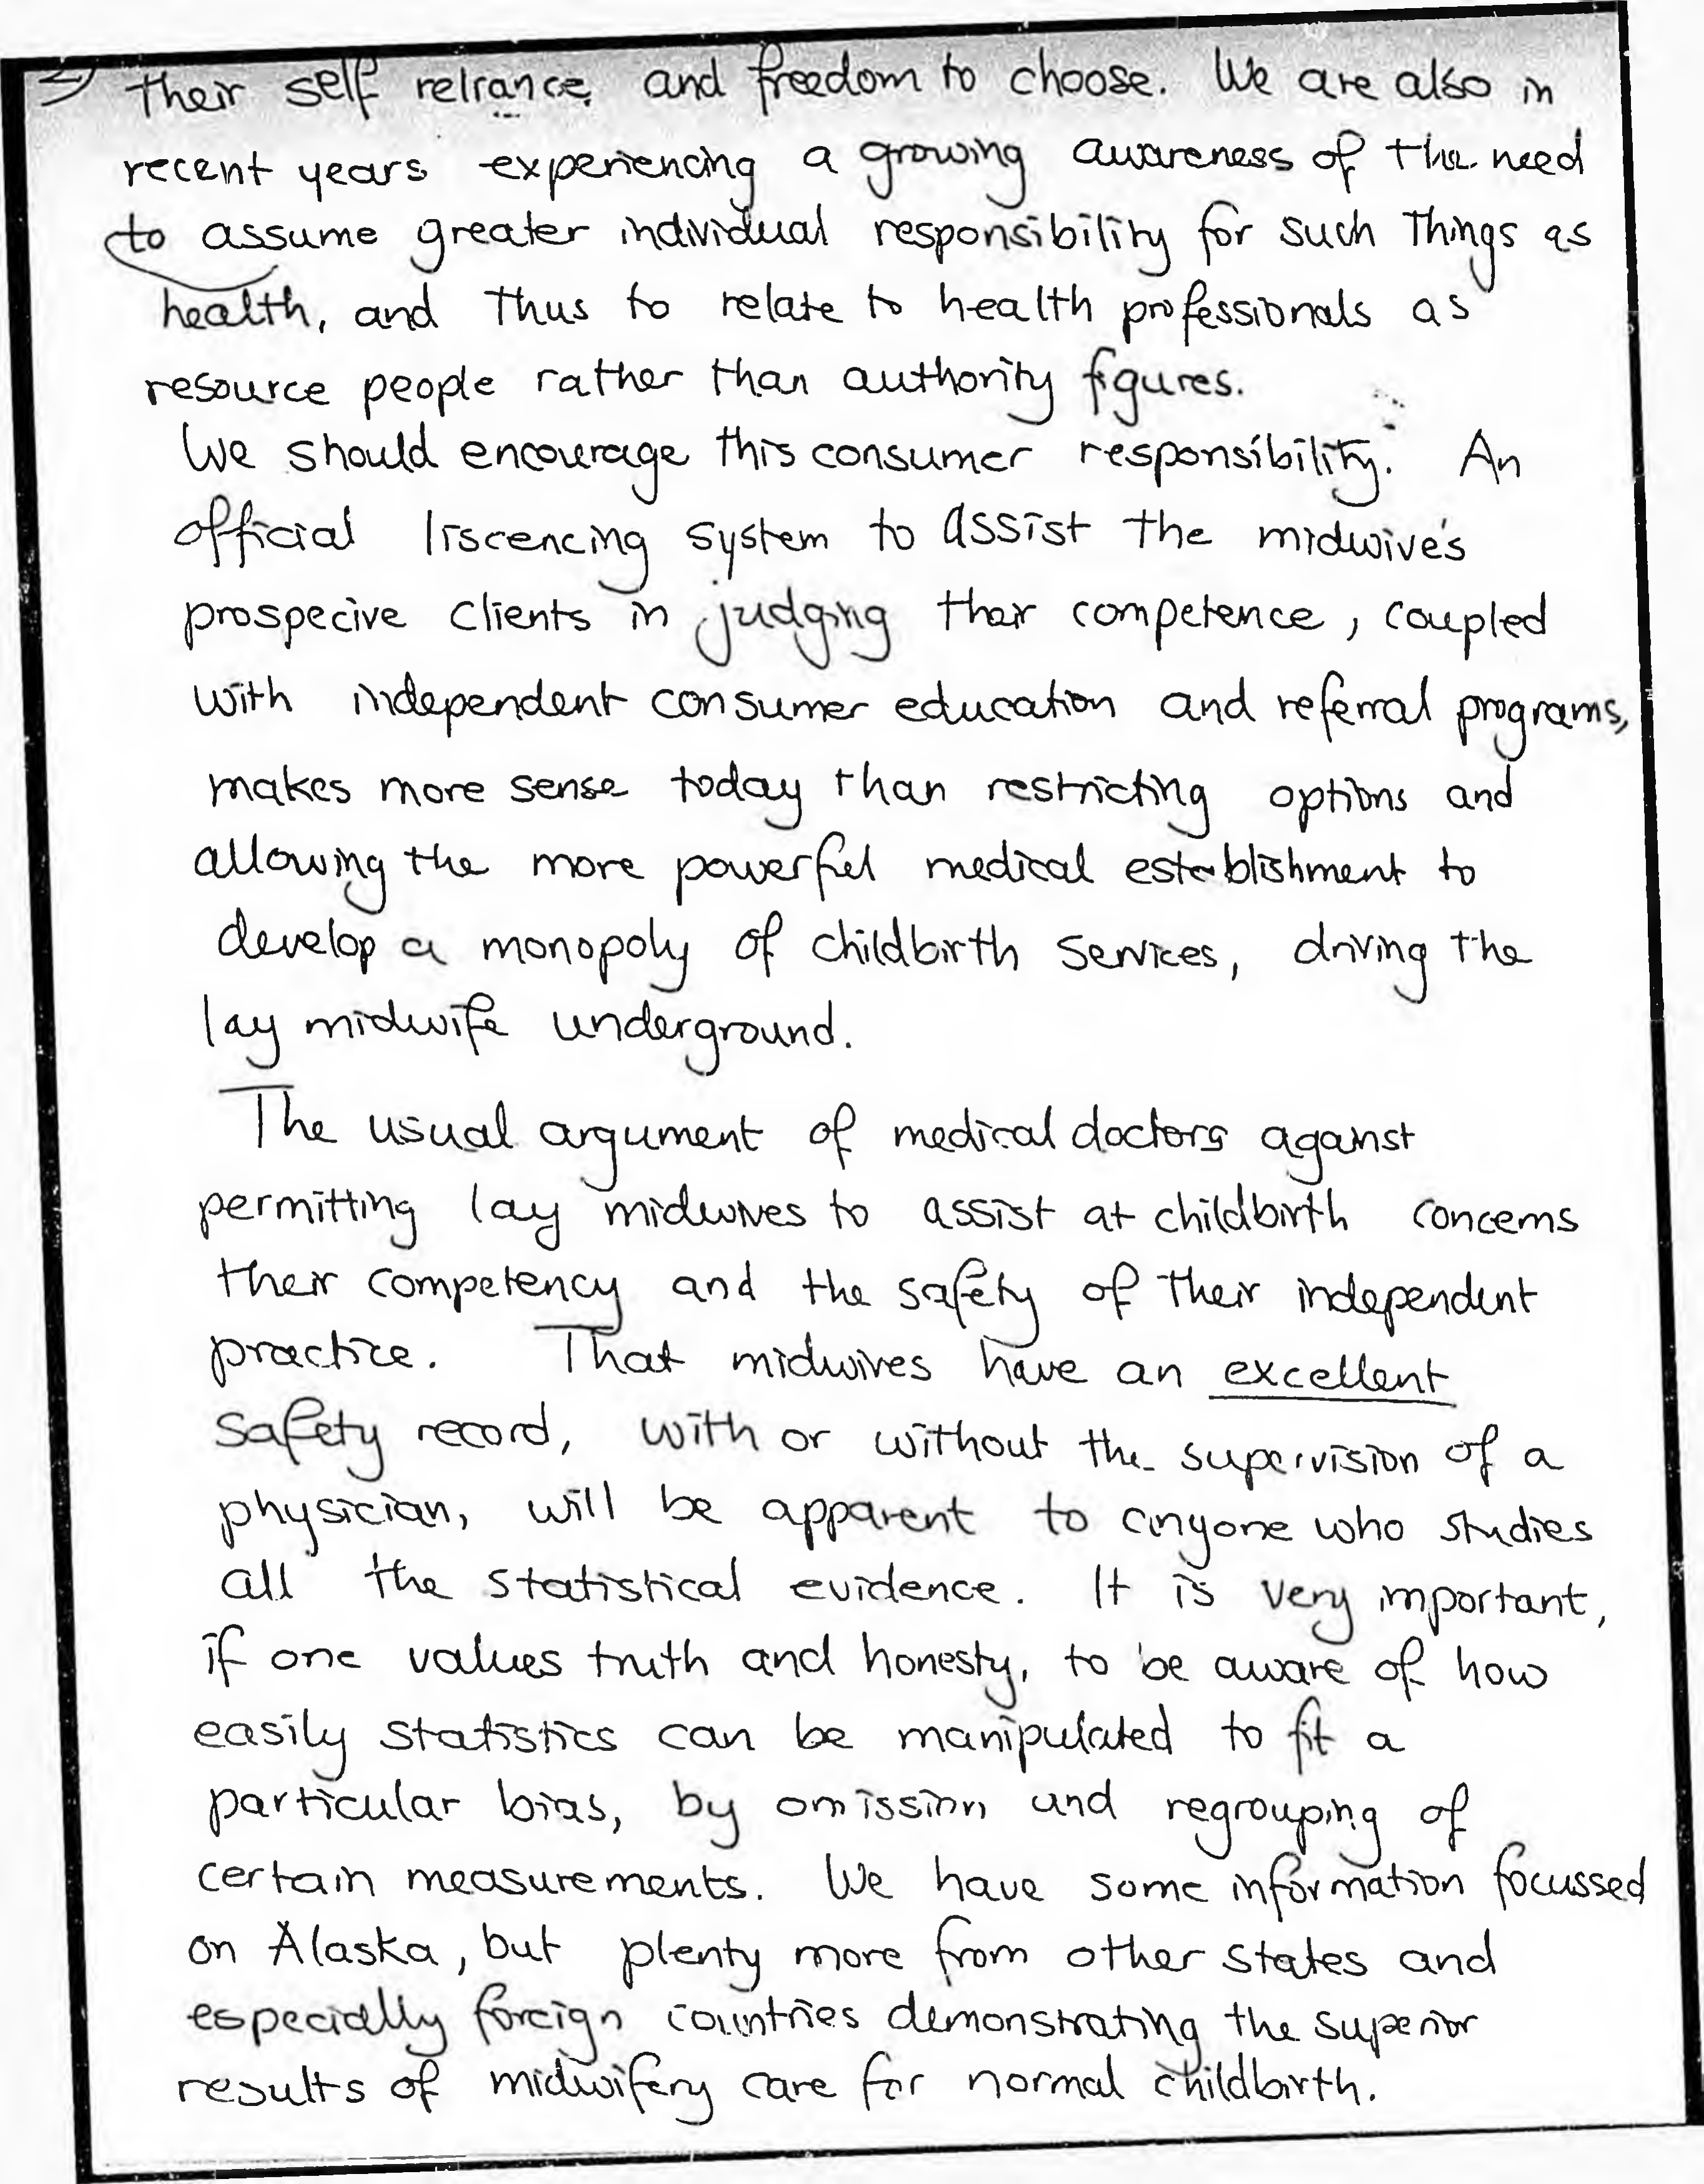 2) their self reliance, and freedom to choose. We are also in
recent years experiencing a growing awareness of the need
to assume greater individual responsibility for such things as
health, and thus to relate to health professionals as
resource people rather than authority figures.
We should encourage this consumer responsibility. An
official liscencing system to assist the midwive's
prospecive clients in judging their competence, coupled
with independent consumer education and referral programs,
makes more sense today than restricting options and
allowing the more powerful medical establishment to
develop a monopoly of childbirth services, driving the
lay midwife underground.
The usual argument of medical doctors against
permitting lay midwives to assist at childbirth concerns
their competency and the safety of their independent
practice. That midwives have an excellent
safety record, with or without the supervision of a
physician, will be apparent to anyone who studies
all the statistical evidence. It is very important,
if one values truth and honesty, to be aware of how
easily statistics can be manipulated to fit a
particular bias, by omission and regrouping of
certain measurements. We have some information focussed
on Alaska, but plenty more from other states and
especially foreign countries demonstrating the superior
results of midwifery care for normal childbirth.